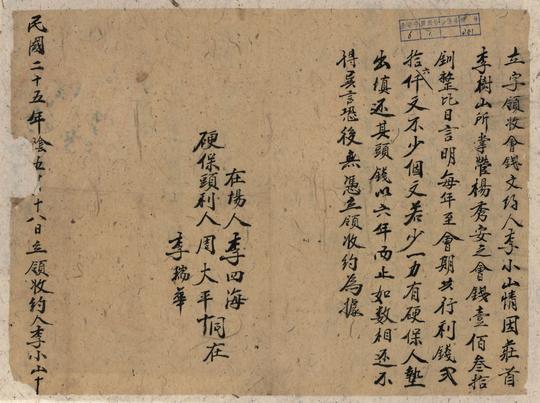 立字領收會錢文約人李小山情因莊首
李樹山所掌營楊秀安之會錢壹佰叁拾
釧整比日言明每年至會期共行利錢弍
拾仟
六
文不少個文若少一力有硬保人墊
出填还其頭錢以六年而止如数相还不
得異言恐後無憑立領收約為據
在場人李四海
硬保頭利人周大平十 同在
李瑞華
民國二十五年陰五 十八日立領收約人李小山十